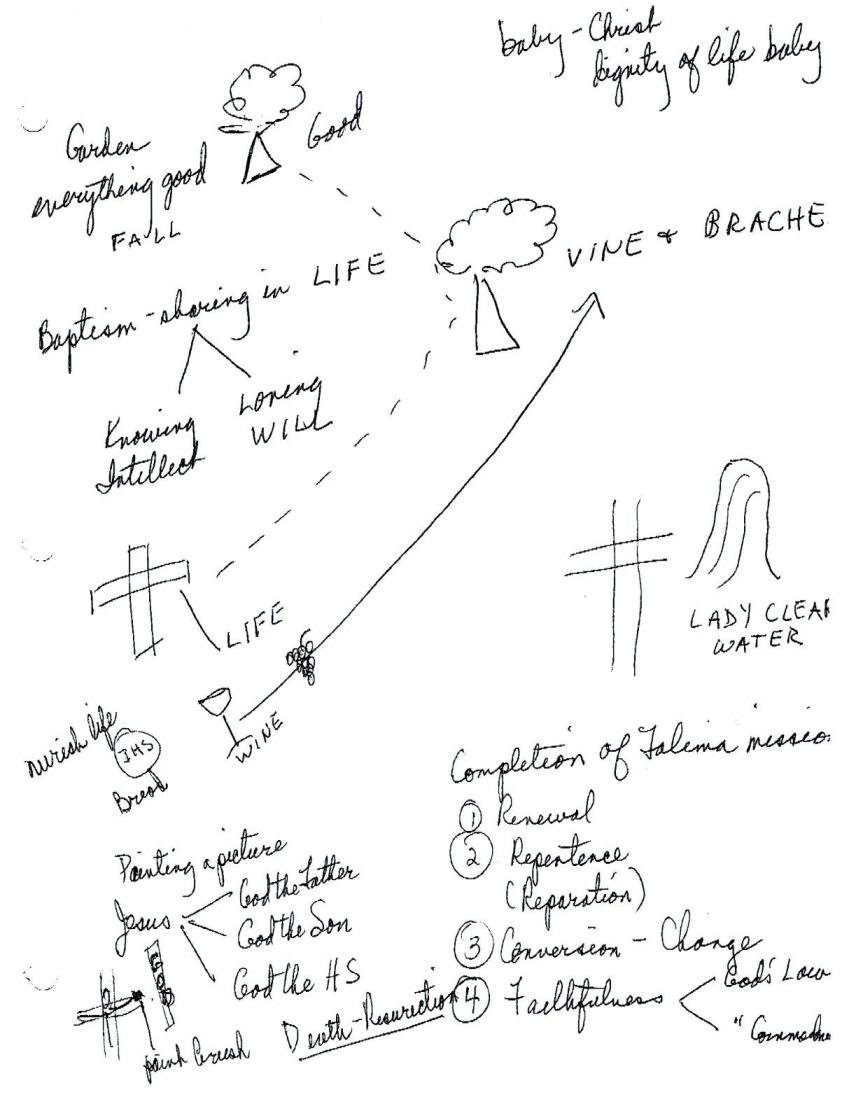 baby - Christ
Dignity of life baby
Good
Garden
everything good
FALL
VINE + BRACHE
Baptism - sharing in LIFE
Knowing
Intellect
Loving
WILL
LIFE
LADY CLEAR
WATER
WINE
nurish life
IHS
Bread
Completion of Fatima missio
① Renewal
② Repentence
(Reparation)
③ Conversion - Change
④ Faithfulness
God's Law
" Comma
Painting a picture
Jesus
God the Father
God the Son
God the HS
paint brush
Death - Resurrection